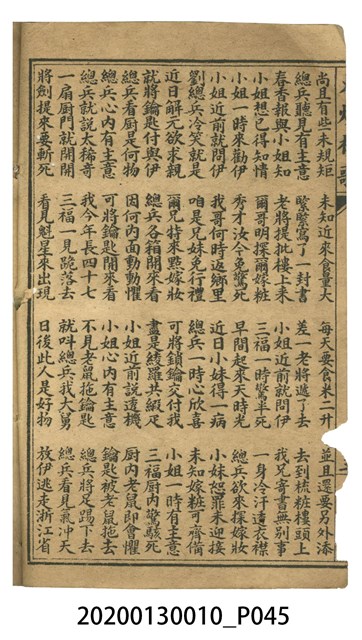 尚且有些未規矩　未知近來食量大　每天要食米二升　並且還要另外添
總兵聽見有主意　緊緊寫了一封書　差一老將遞了去　去到梳粧樓頭上
春香報與小姐知　老將提批樓上來　小姐近前就問伊　我兄寄書無別事
小姐想已得知情　爾哥明採爾嫁粧　三福一時驚半死　一身冷汗遺衣襟
小姐一時來勸伊　秀才汝今免驚死　早間起來天時光　總兵欲來探嫁妝
小姐近前就問伊　我哥何時返鄉里　近日小妹得一病　小妹恕罪未迎接
劉總兵冷笑就是　咱是兄妹免行禮　總兵一時心欣喜　未知嫁粧可齊備
近日解元欲求親　爾兄特來點嫁妝　可將鎖鑰交付我　小姐一時有主意
就將鑰匙付與伊　總兵各箱開來看　盡是綾羅共緞疋　三福厨內驚駭死
總兵看厨是何物　因何內面動動惧　小姐近前說透機　厨內老鼠即會惧
總兵心內有主意　可將鑰匙開來看　小姐心內有主意　鑰匙被老鼠拖去
總兵就說太稀奇　我今年長四十七　不見老鼠拖鑰匙　總兵將足踢下去
一扇厨門就開開　三福一見跪落去　就呌總兵我大舅　總兵看見氣沖天
將劍提來要斬死　看見魁星來出現　日後此人是好物　放伊逃走浙江省
20200130010_P045